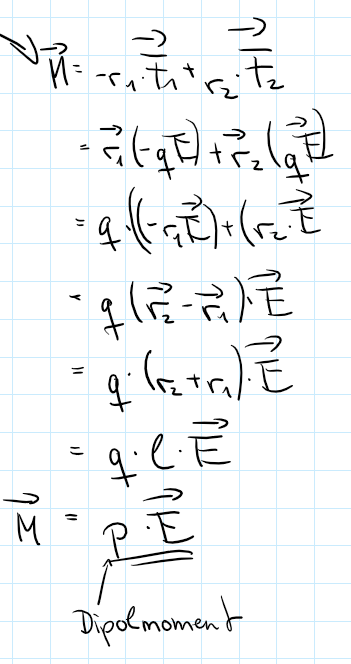 M⃗ = -r₁·t⃗₁ + r₂·t⃗₂
= r⃗₁(-qE⃗) + r⃗₂(qE⃗)
= q·((-r₁E⃗) + (r₂·E⃗
= q(r⃗₂ - r⃗₁)·E⃗
= q·(r₂ + r₁)·E⃗
= q·l·E⃗
M⃗ = p·E⃗
Dipolmoment